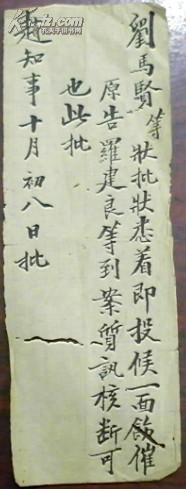 劉馬賢等狀批狀悉着即投候一面飭催
原告羅建良等到案質訊核斷可
也此批
趙知事十月初八日批